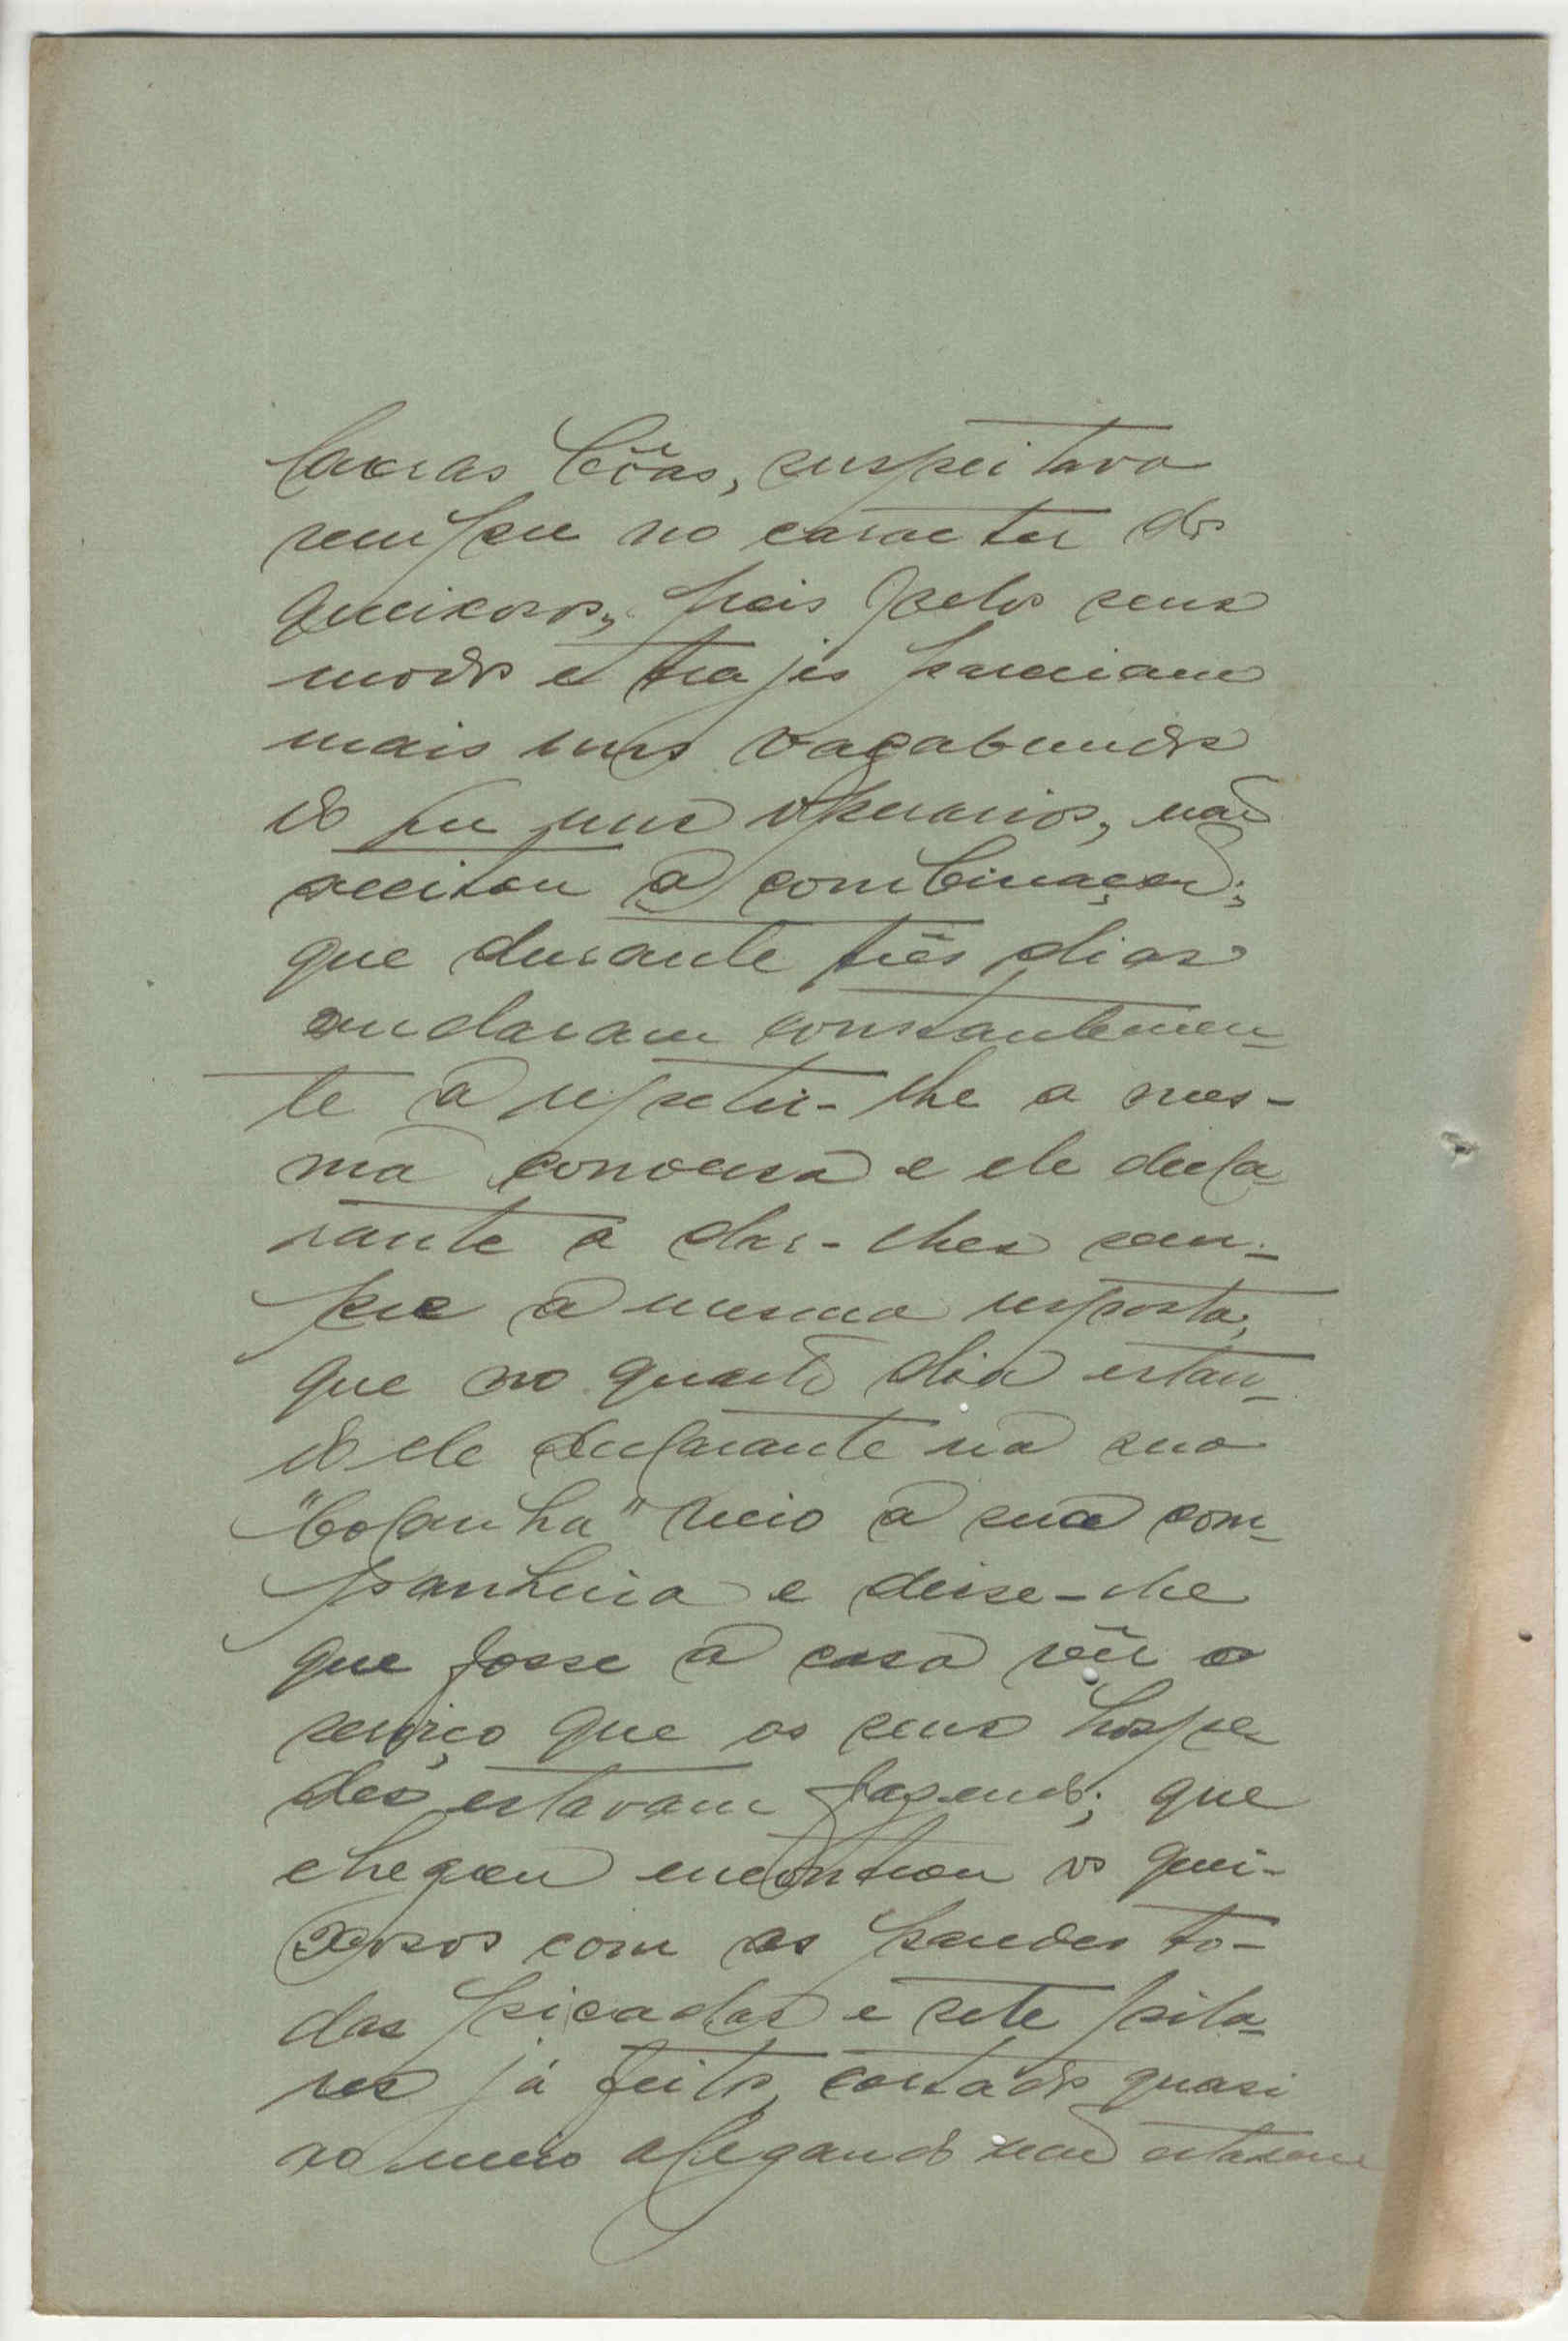 lavras bôas, suspeitava
sempre no caracter dos
queixosos, pois pelos seus
modos e trajes pareciam
mais uns vagabundos
do que uns operarios, não
aceitou a combinação;
que durante três dias
andaram constantemen-
te a repetir-lhe a mes-
ma conversa e ele decla-
rante a dar-lhes sem-
pre a mesma resposta;
que no quarto dia estan-
do ele declarante na sua
"bolanha" veio a sua com-
panheira e disse-lhe
que fosse a casa vêr o
serviço que os seus hospe-
des estavam fazendo; que
chegou encontrou os quei-
xosos com as paredes to-
das picadas e sete pila-
res já feitos, cortados quasi
no meio alegando não estarem